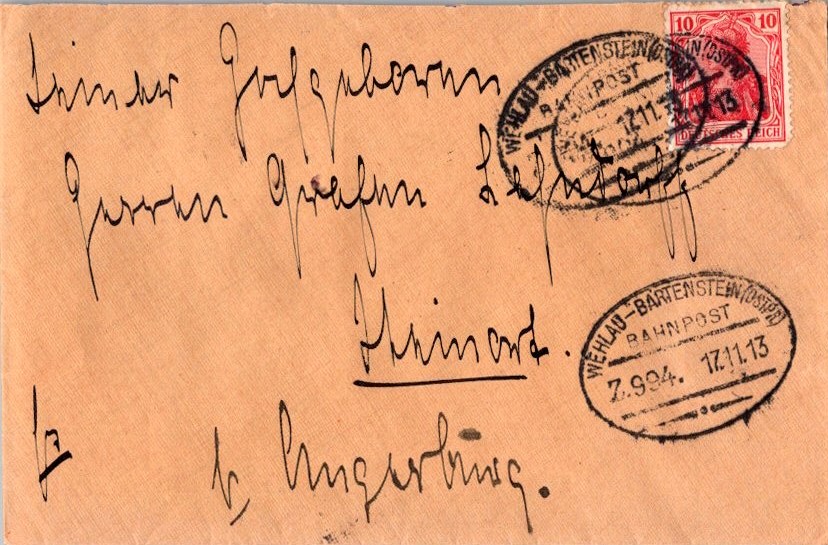 10 10
DEUTSCHES REICH
WEHLAU-BARTENSTEIN (OSTPR)
BAHNPOST
17.11.13
Seiner Hochgeboren
Herren Grafen Lehndorff
Steinort.
WEHLAU-BARTENSTEIN (OSTPR)
BAHNPOST
Z.994. 17.11.13
b. Angerburg.